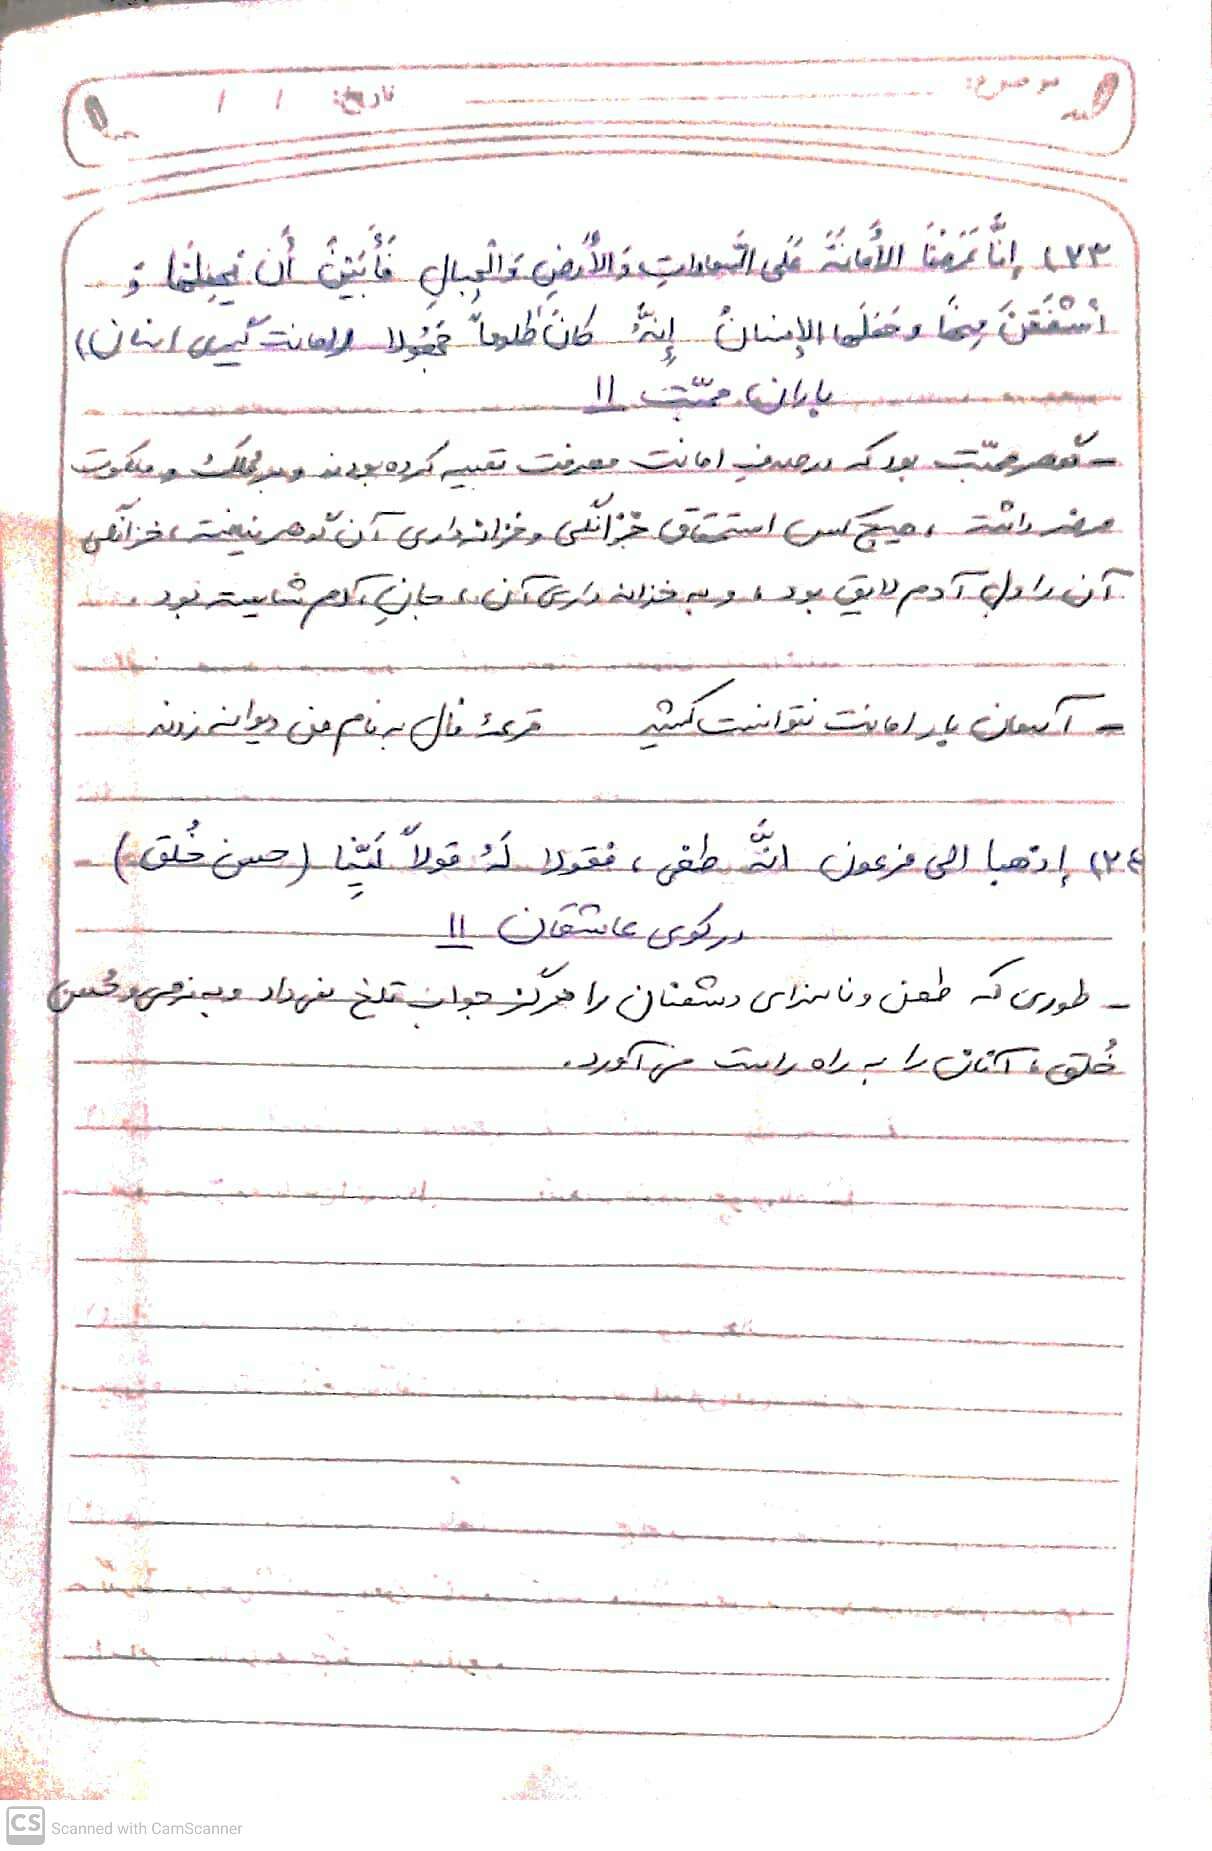 موضوع: تاریخ: / /
۲۳) إِنَّا عَرَضْنَا الأَمَانَةَ عَلَى السَّماواتِ وَالأَرْضِ وَالْجِبالِ فَأَبَيْنَ أَن يَحْمِلْنَها وَ
أَشْفَقْنَ مِنها وَحَمَلَها الإِنسانُ إِنَّهُ كانَ ظَلوماً جَهُولا (امانت گیری انسان)
باران محبّت 11
- گوهر محبّت بود که در صدف امانت معرفت تعبیه کرده بودند و بر مُلک و ملکوت
عرضه داشته ، هیچ کس استحقاق خزانگی و خزانه‌داری آن گوهر نیافته ، خزانگی
آن را دلِ آدم لایق بود ، و به خزانه داری آن ، جانِ آدم شایسته بود .
- آسمان بار امانت نتوانست کشید قرعۀ فال به نام من دیوانه زدند
۲٤) إذهبا الی فرعون انَّهُ طغی ، فقولا لَهُ قولاً لَیِّنا (حسن خُلق) -
در کوی عاشقان 11
- طوری که طعن و ناسزای دشمنان را هرگز جواب تلخ نمی‌داد و به نرمی و حُسن
خُلق ، آنان را به راه راست می‌آورد .
CS Scanned with CamScanner